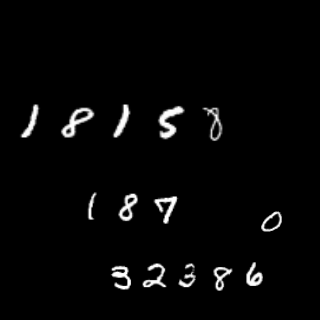 18158
187 0
32386